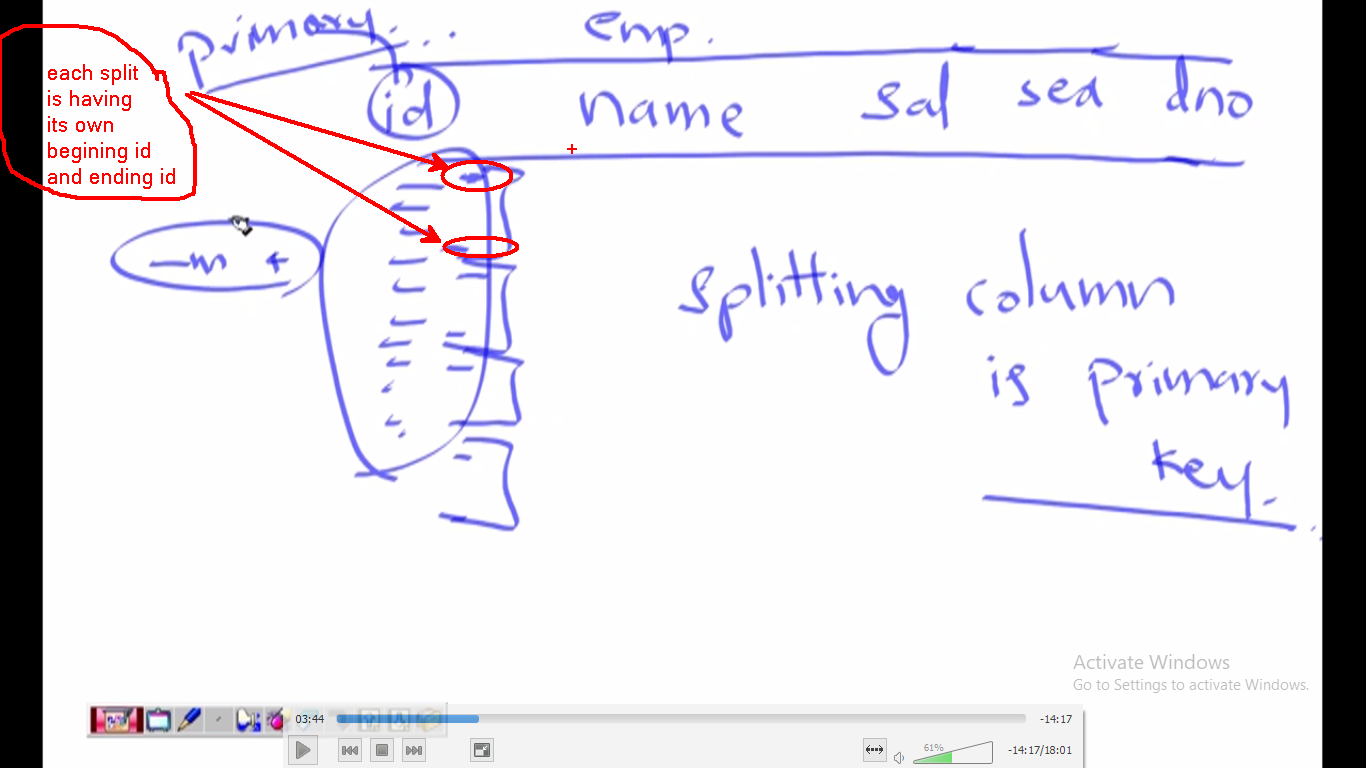 primary...
emp.
each split
is having
its own
begining id
and ending id
id name sal sex dno
-m +
splitting column
is primary
key.
Activate Windows
Go to Settings to activate Windows.
03:44
-14:17
61%
-14:17/18:01